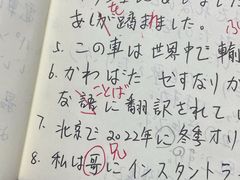 を
あしが踏まれました。
5. この車は世界中で輸
6. かわばた やすなりか
ことば
な語に翻訳されてい
7. 北京で2022年に冬季オリ
兄
8. 私は哥にインスタントラ